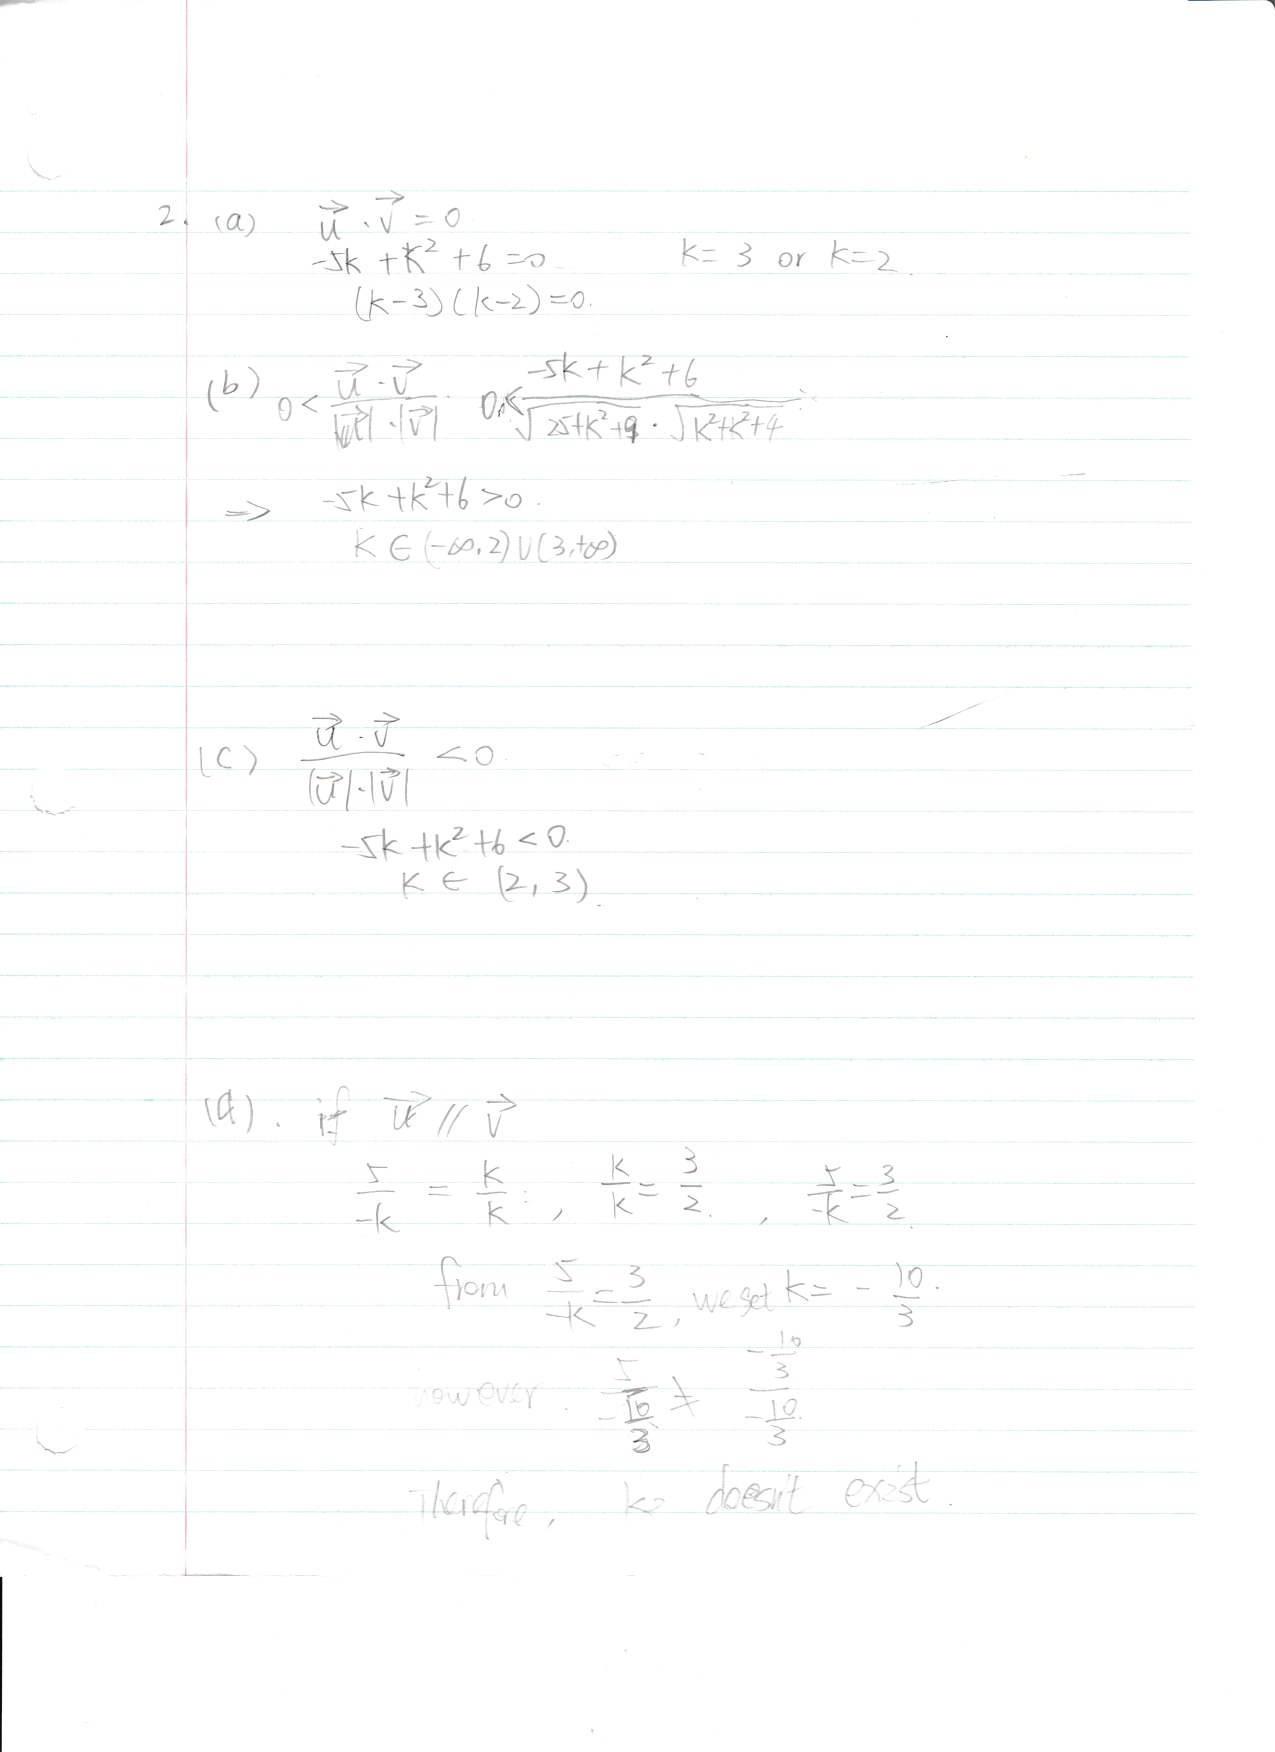 2. (a) u⃗ · v⃗ = 0
-5k + k² + 6 = 0 k = 3 or k = 2.
(k-3)(k-2) = 0.
(b) 0 < u⃗ · v⃗ / |u⃗| · |v⃗| 0 < -5k + k² + 6 / √25+k²+9 · √k²+k²+4
⇒ -5k + k² + 6 > 0.
k ∈ (-∞, 2) ∪ (3, +∞)
(c) u⃗ · v⃗ / |u⃗| · |v⃗| < 0.
-5k + k² + 6 < 0.
k ∈ (2, 3).
(d). if u⃗ // v⃗
5/-k = k/k, k/k = 3/2, 5/-k = 3/2.
from 5/-k = 3/2, we get k = -10/3.
however. 5/-10/3 ≠ -10/3/-10/3
Therefore, k doesn't exist.